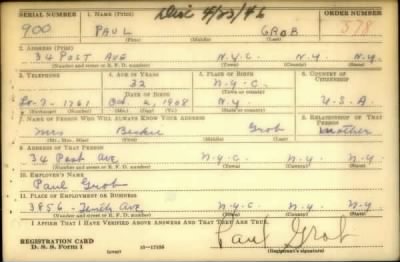 Dist 4/23/46
SERIAL NUMBER 1. NAME (Print) ORDER NUMBER
900 PAUL GROB 578
(First) (Middle) (Last)
2. ADDRESS (Print)
34 POST AVE N.Y.C. N.Y. N.Y.
(Number and street or R. F. D. number) (Town) (County) (State)
3. TELEPHONE 4. AGE IN YEARS 5. PLACE OF BIRTH 6. COUNTRY OF CITIZENSHIP
32 N.Y.C.
DATE OF BIRTH (Town or county)
Lo-7-1761 Oct. 2, 1908 N.Y. U.S.A.
(Exchange) (Number) (Mo.) (Day) (Yr.) (State or country)
7. NAME OF PERSON WHO WILL ALWAYS KNOW YOUR ADDRESS 8. RELATIONSHIP OF THAT PERSON
Mrs Grob Mother
(Mr., Mrs., Miss) (First) (Middle) (Last)
9. ADDRESS OF THAT PERSON
34 Post Ave N.Y.C. N.Y. N.Y.
(Number and street or R. F. D. number) (Town) (County) (State)
10. EMPLOYER'S NAME
Paul Grob
11. PLACE OF EMPLOYMENT OR BUSINESS
3856 - Tenth Ave N.Y.C. N.Y. N.Y.
(Number and street or R. F. D. number) (Town) (County) (State)
I AFFIRM THAT I HAVE VERIFIED ABOVE ANSWERS AND THAT THEY ARE TRUE.
REGISTRATION CARD
D. S. S. Form 1 (over) 16-17105 Paul Grob
(Registrant's signature)